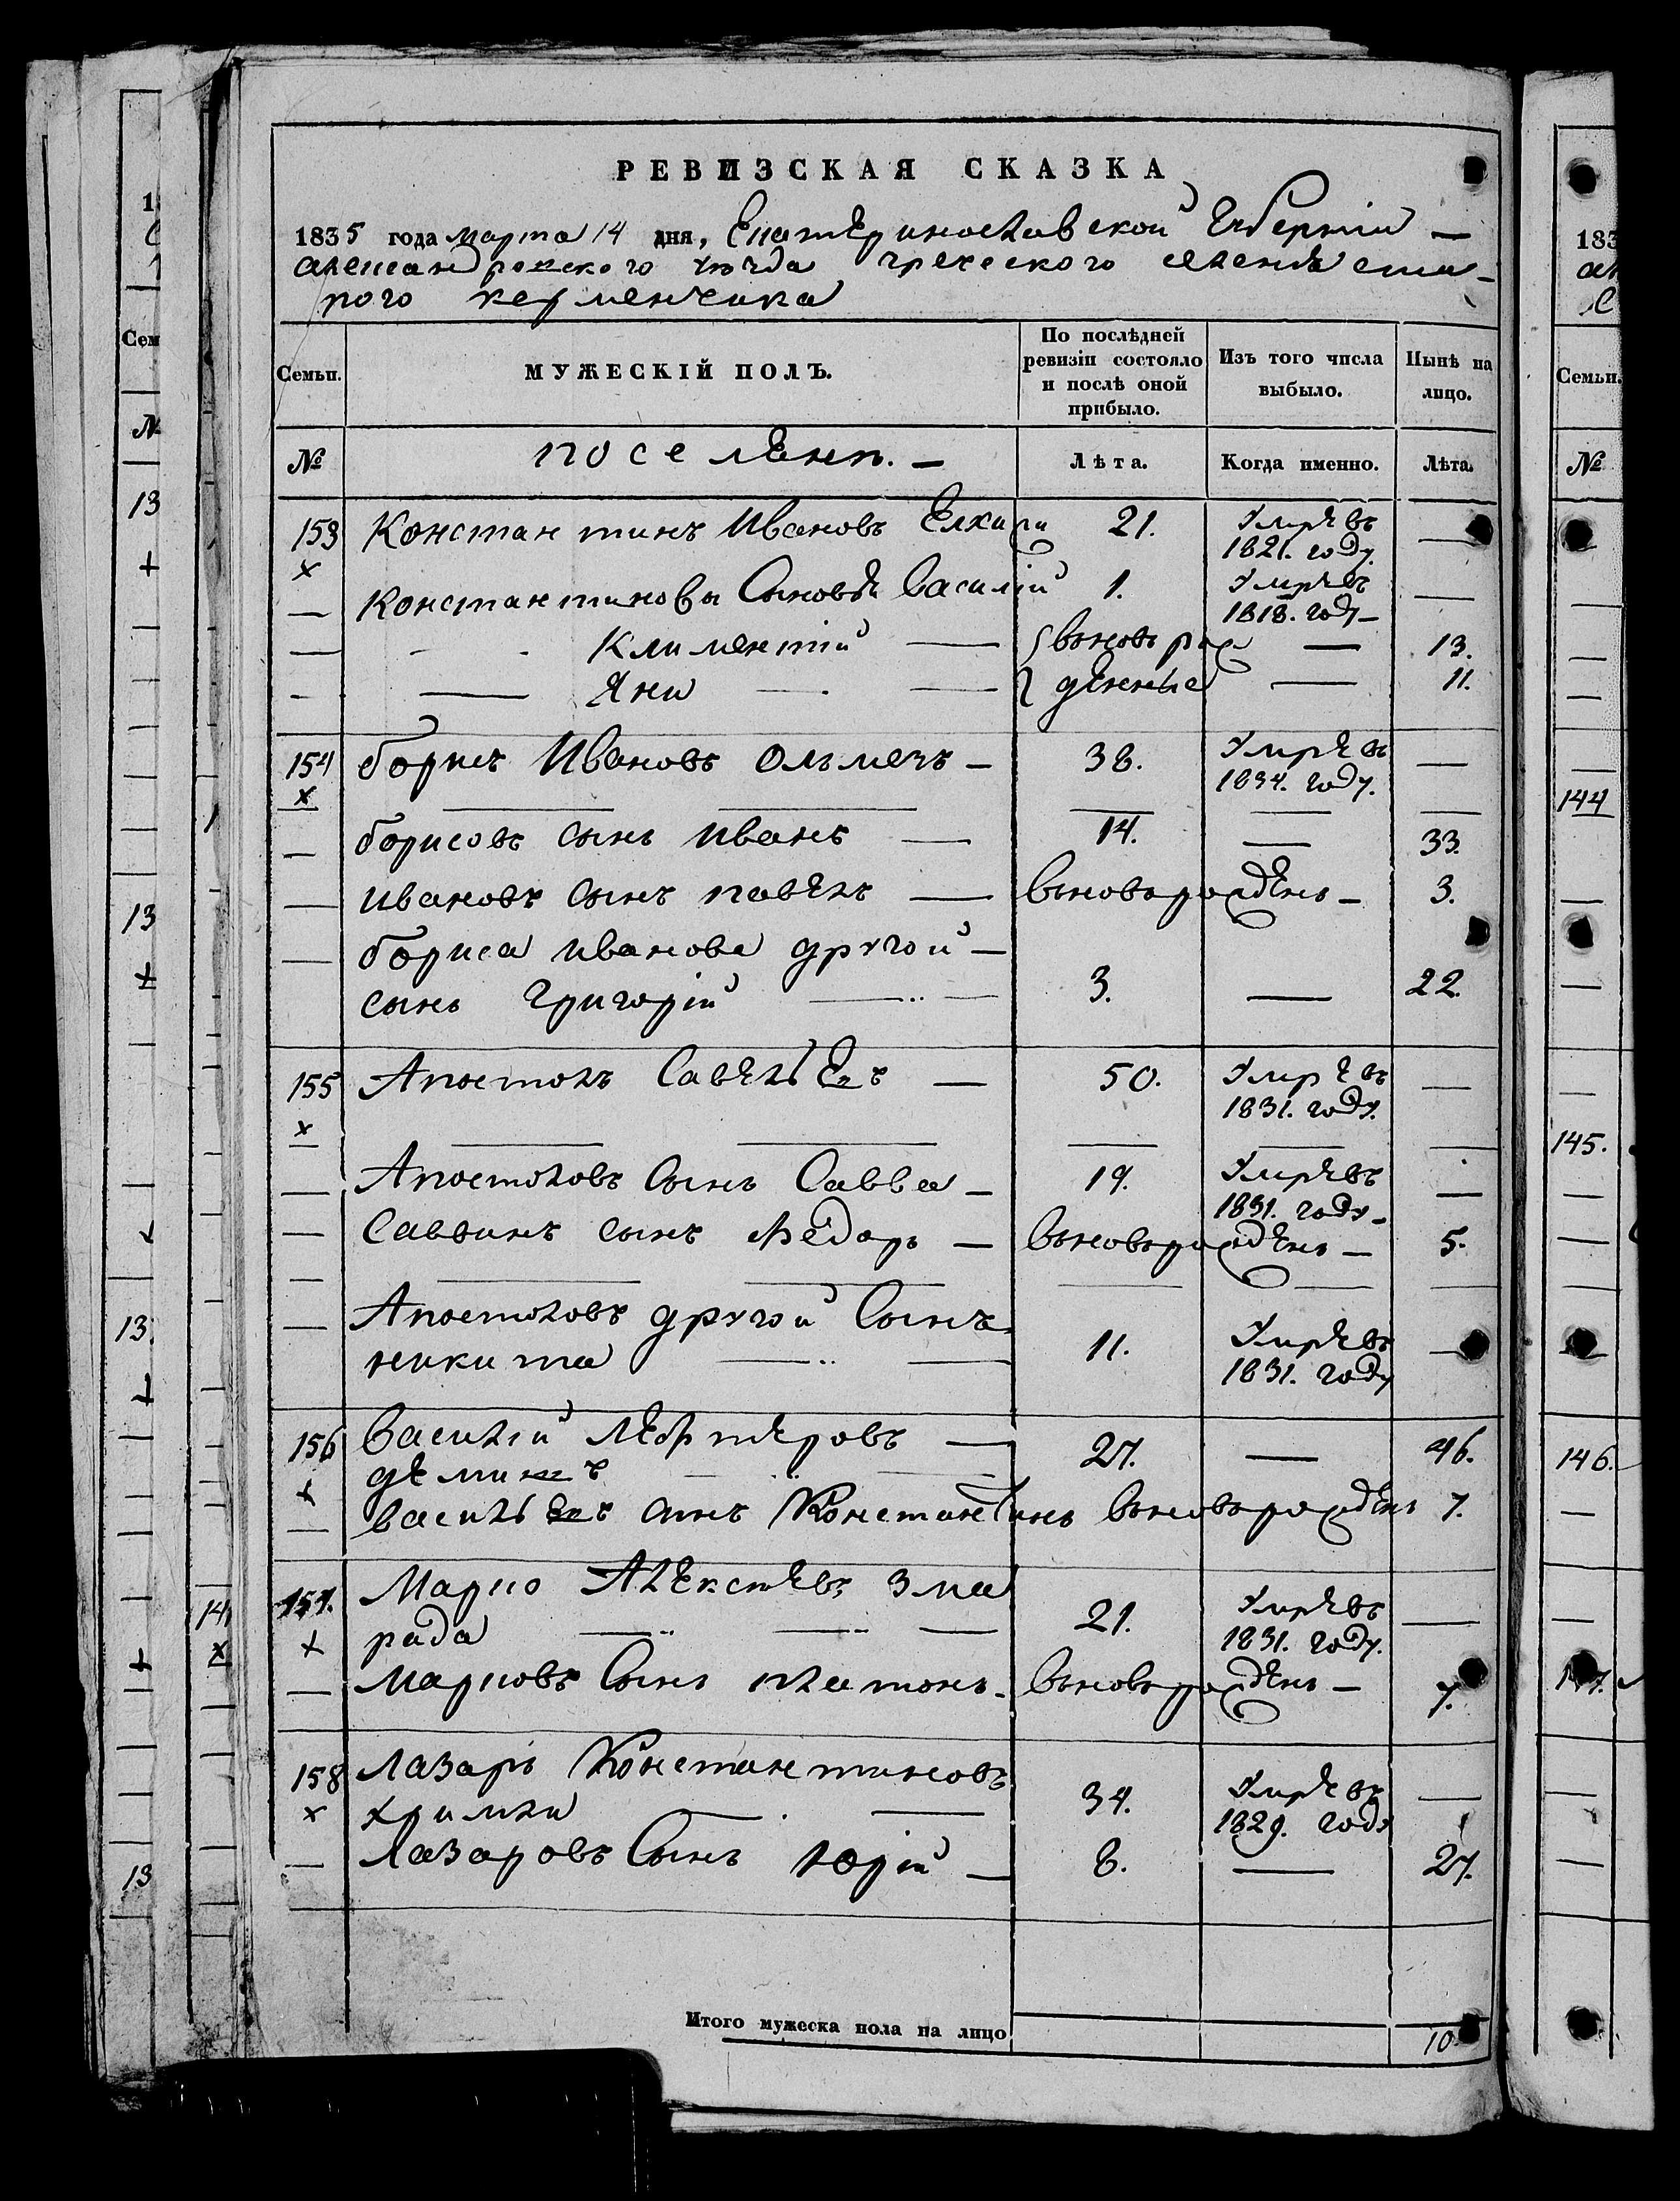 РЕВИЗСКАЯ СКАЗКА
1835 года марта 14 дня, Екатеринославской Губерніи —
александровского уѣзда греческого селенія ста-
рого керменчика
Семьи. МУЖЕСКІЙ ПОЛЪ. По послѣдней ревизіи состояло и послѣ оной прибыло. Изъ того числа выбыло. Нынѣ на лицо.
№ поселянъ. — Лѣта. Когда именно. Лѣта.
153 Константинъ Ивановъ 21. Умре въ 1821. году —
х
— Константиновы Сыновья Василій 1. Умре въ 1818. году —
— Климентій — вьновь рож — 13.
— Яни — денные — 11.
154 борисъ Ивановъ Ольмечъ — 38. Умре въ 1834. году. —
х
— борисовъ сынъ иванъ — 14. — 33.
— ивановъ сынъ павелъ — вьновьрожденъ — 3.
— бориса иванова другой —
сынъ Григорій — 3. — 22.
155 Апостолъ Савельевъ — 50. Умре въ 1831. году. —
х
— Апостоловъ Сынъ Савва — 19. Умре въ 1831. году —
— Саввинъ сынъ Федоръ — вьновьрожденъ — 5.
— Апостоловъ другой Сынъ
никита — 11. Умре въ 1831. году —
156 Василій Лефтеровъ — 27. — 46.
х
— васильевъ сынъ Константинъ вьновьрожденъ 7.
157. Марко Алексѣевъ Зма
х рада — 21. Умре въ 1831. году. —
— Марковъ Сынъ платонъ — вьновьрожденъ — 7.
158 Лазарь Константиновъ
х 34. Умре въ 1829. году —
— Лазаровъ Сынъ Юрій — 8. — 27.
Итого мужеска пола на лицо 10.
183
Семьи.
№
144
145.
146.